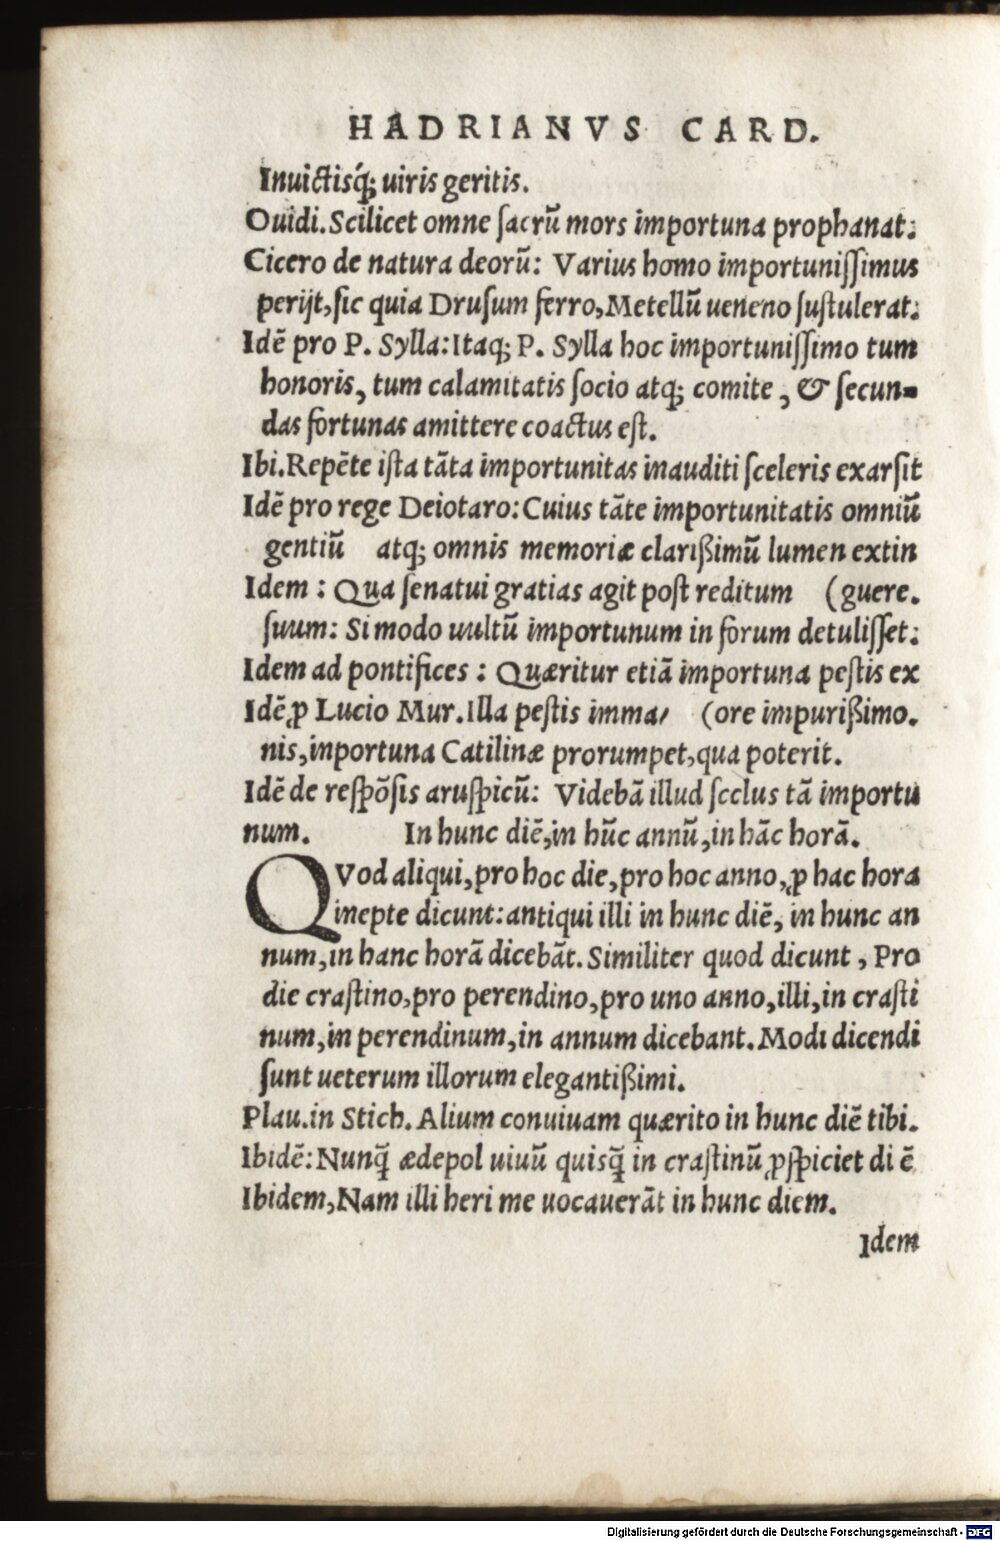 HADRIANVS CARD.
Inuictisq́; uiris geritis.
Ouidi. Scilicet omne ſacrũ mors importuna prophanat.
Cicero de natura deorũ: Varius homo importuniſſimus
perijt, ſic quia Druſum ferro, Metellũ ueneno ſuſtulerat.
Idẽ pro P. Sylla: Itaq; P. Sylla hoc importuniſſimo tum
honoris, tum calamitatis ſocio atq; comite, & ſecun-
das fortunas amittere coactus eſt.
Ibi. Repẽte iſta tãta importunitas inauditi ſceleris exarſit
Idẽ pro rege Deiotaro: Cuius tãte importunitatis omniũ
gentiũ atq; omnis memoriæ clarißimũ lumen extin
Idem: Qua ſenatui gratias agit poſt reditum (guere.
ſuum: Si modo uultũ importunum in forum detuliſſet.
Idem ad pontifices: Quæritur etiã importuna peſtis ex
Idẽ ꝓ Lucio Mur. Illa peſtis imma/ (ore impurißimo.
nis, inportuna Catilinæ prorumpet, qua poterit.
Idẽ de reſpõſis aruſpicũ: Videbã illud ſcelus tã importu
num. In hunc diẽ, in hũc annũ, in hãc horã.
QVod aliqui, pro hoc die, pro hoc anno, ꝓ hac hora
inepte dicunt: antiqui illi in hunc diẽ, in hunc an
num, in hanc horã dicebãt. Similiter quod dicunt, Pro
die craſtino, pro perendino, pro uno anno, illi, in craſti
num, in perendinum, in annum dicebant. Modi dicendi
ſunt ueterum illorum elegantißimi.
Plau. in Stich. Alium conuiuam quærito in hunc diẽ tibi.
Ibidẽ: Nunq̃ ædepol uiuũ quisq̃ in craſtinũ ꝓſpiciet di ẽ
Ibidem, Nam illi heri me uocauerãt in hunc diem.
Idem
Digitalisierung gefördert durch die Deutsche Forschungsgemeinschaft - DFG